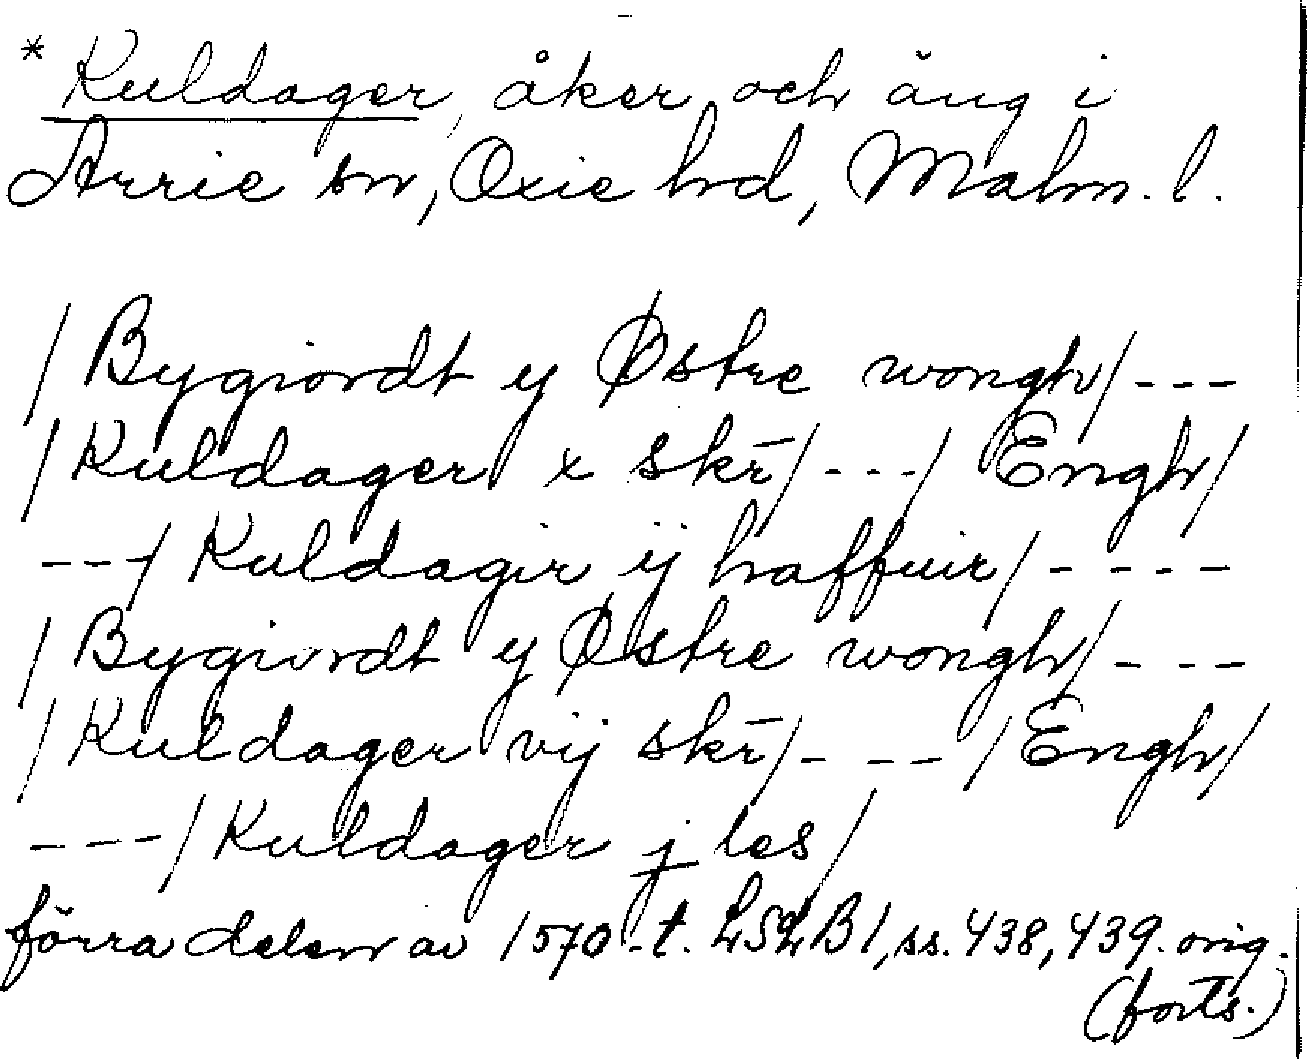 * Kuldager, åker och äng i
Arrie sn, Oxie hd, Malm. l.
/Bygiordt y Østre wongh/ ---
/Kuldager x skr̄/ ---/ Engh/
---/ Kuldagir ij haffuir/ ----
/Bygiordt y Østre wongh/ ---
/Kuldager vij skr̄/ ---- /Engh/
---/ Kuldager j les/
förra delen av 1570-t. LSLB1, ss. 438, 439. orig.
(forts.)